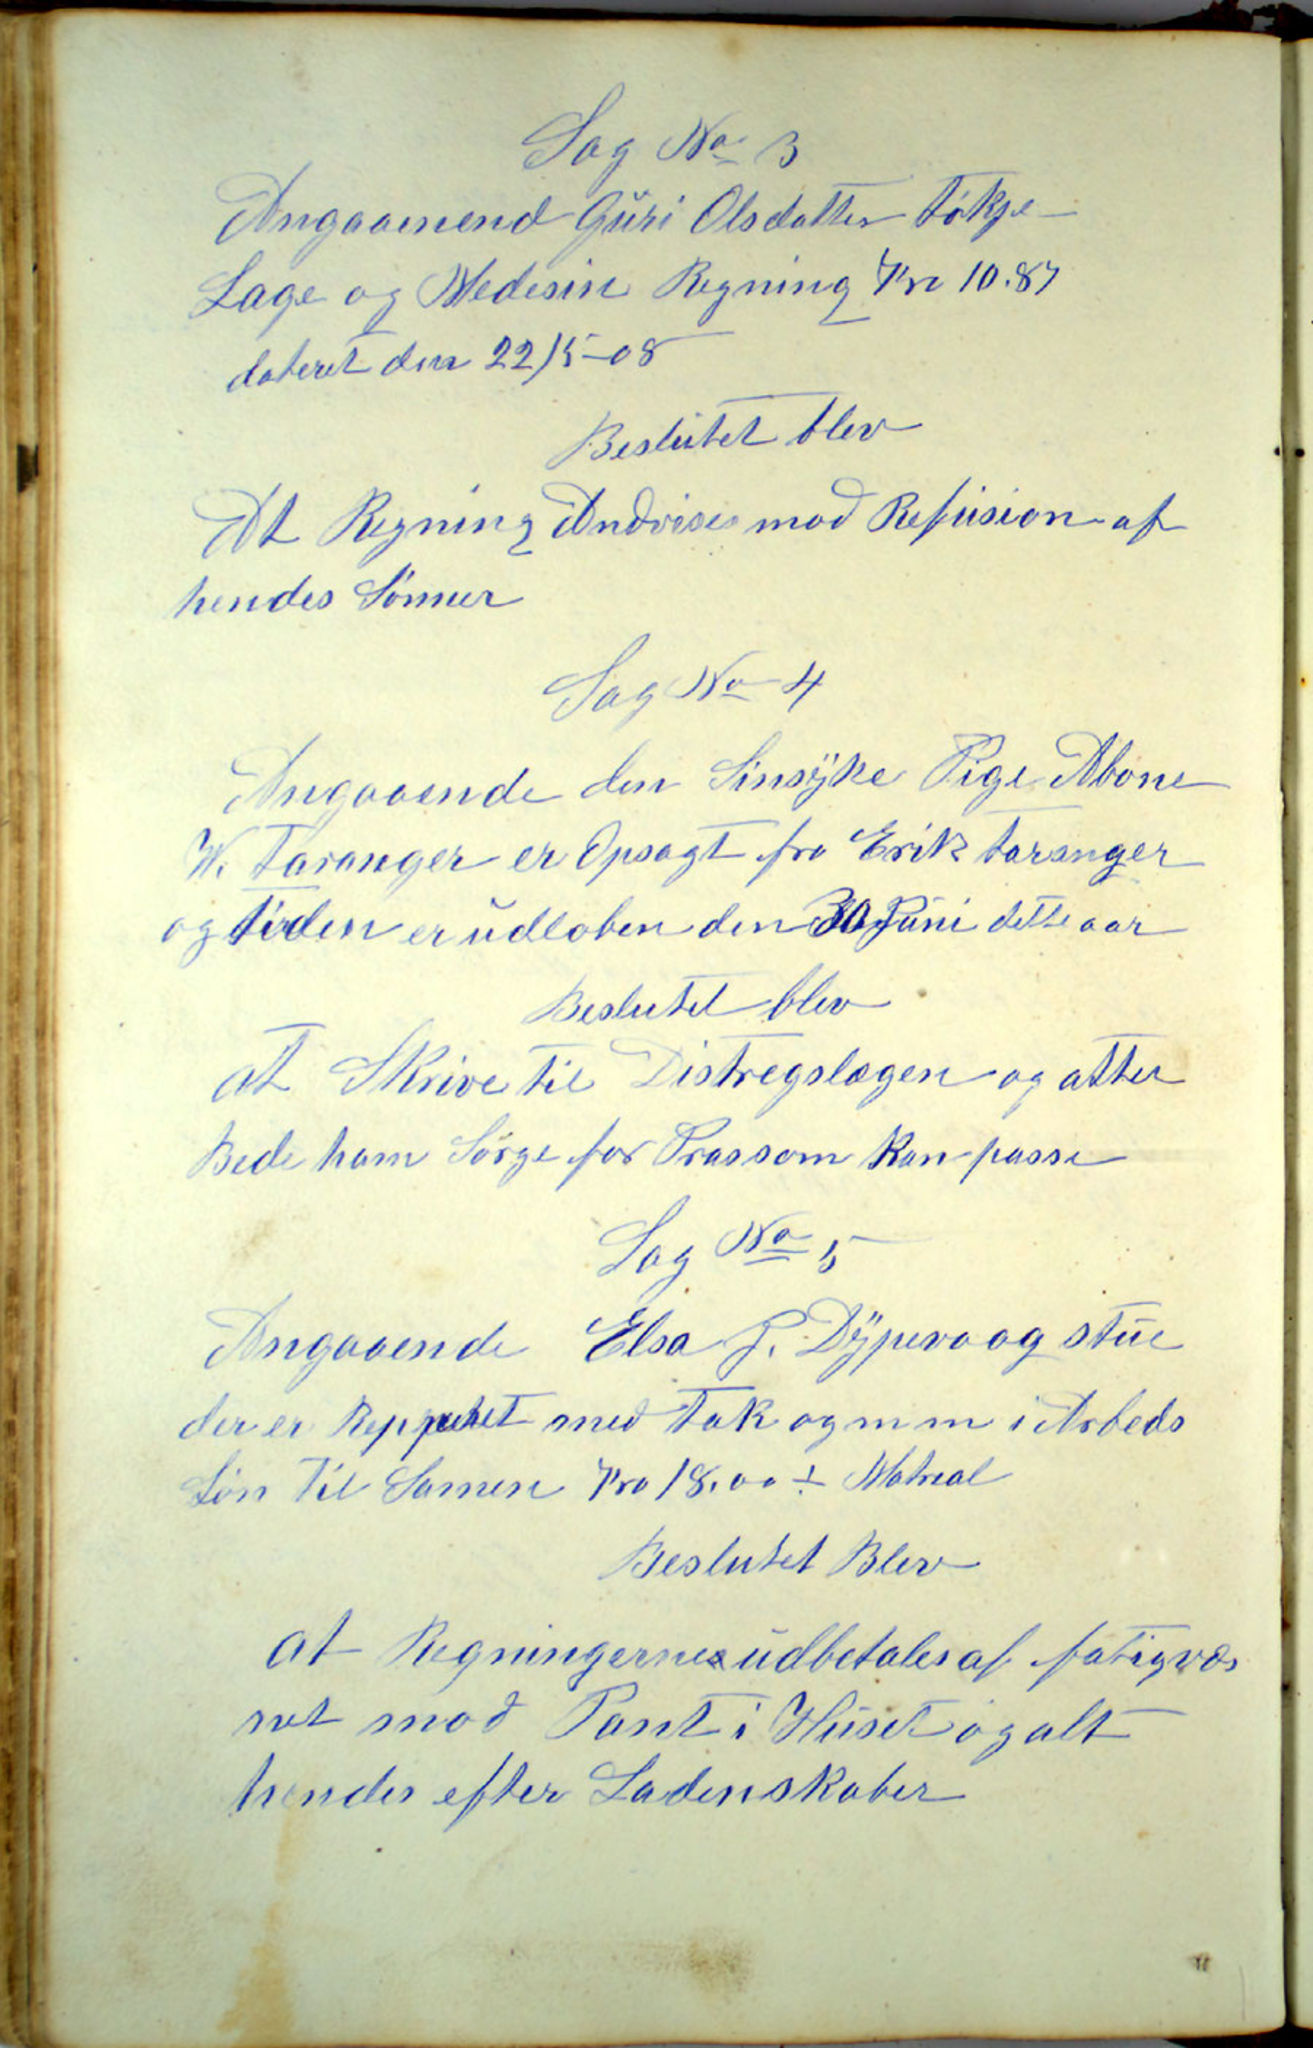 Sag No 3
Angaaenend Guri Olsdatter Tökje
Læge og Medesin Regning Kr 10.87
dateret den 22/5-08
Beslutet blev
At Regning Andvises mod Refusion af
hendes Sönner
Sag No 4
Angaaende den Sinsyke Pige Abone
W. Taranger er Opsagt fra Erik Taranger
og Tiden er udloben den 30 Juni dette aar
Beslutet blev
at Skrive til Distregslægen og atter
Bede ham Sörge for Plass som kan passe
Sag No 5
Angaaende Elsa J. Dypevaag stue
der er Repperet med Tak og m m i Arbeds
Lön til Samen Kro 18.00 ÷ Matreal
Beslutet Blev
at Regningerne udbetales af fatigvæs
net mod Pant i Huset og alt
hendes efter Ladenskaber